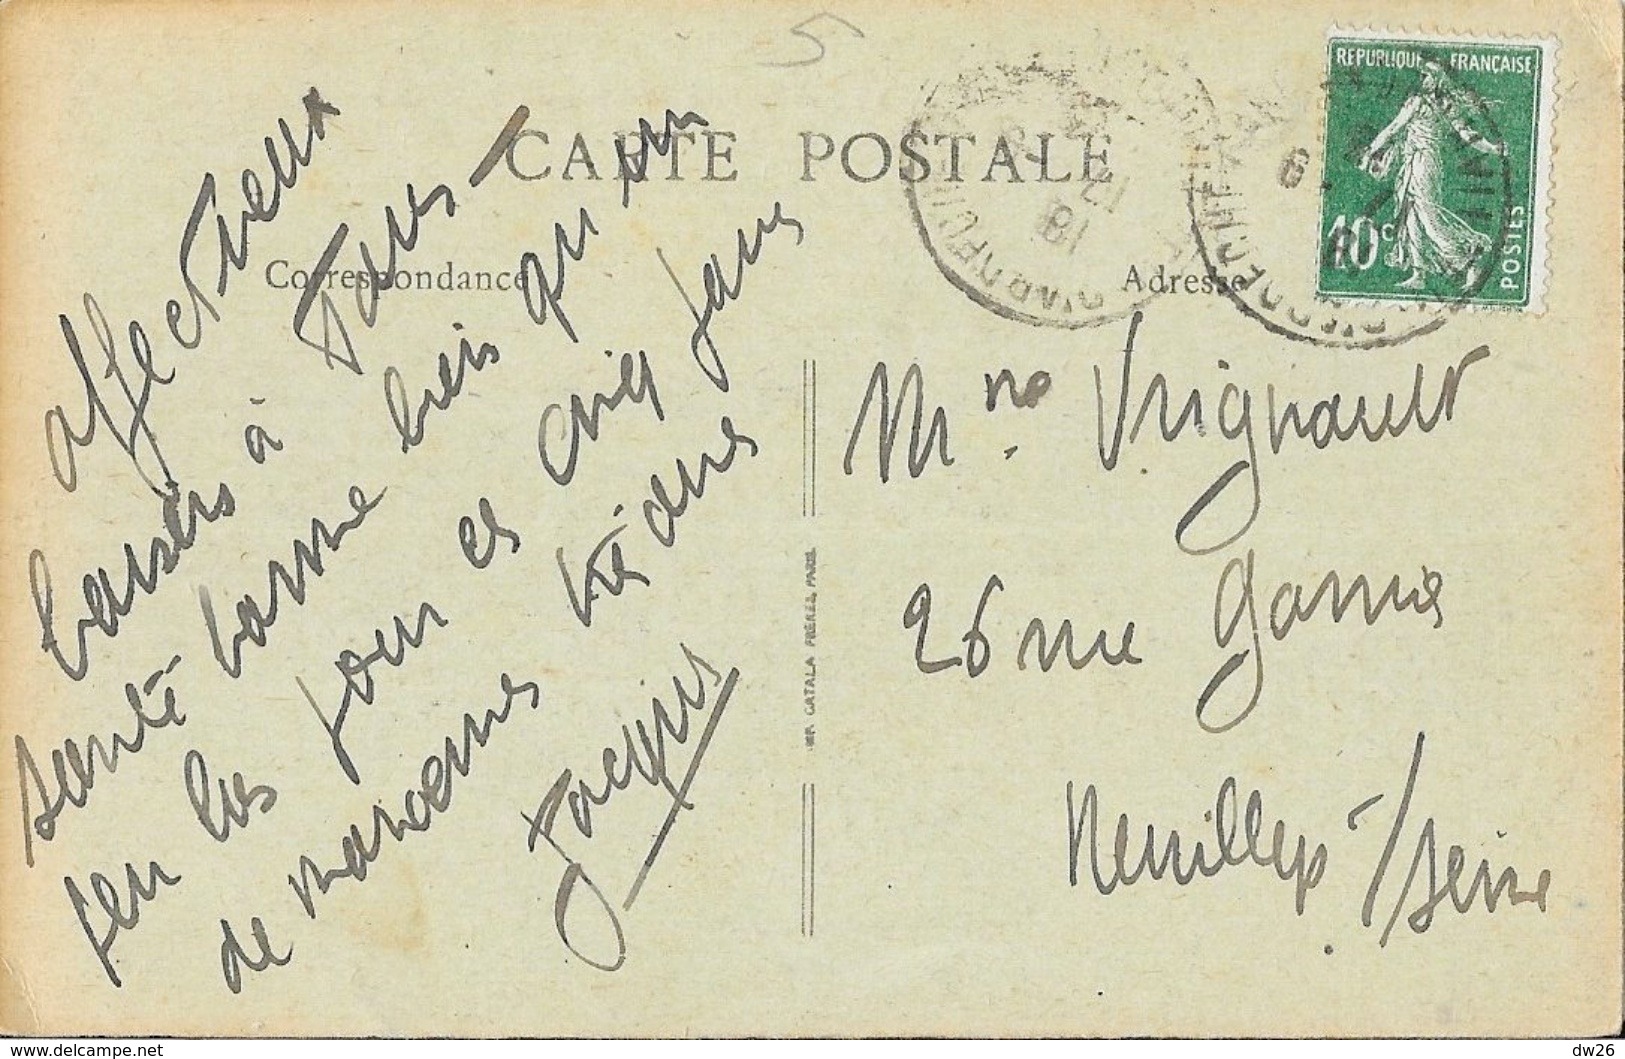 CARTE POSTALE
Correspondance
Adresse
REPUBLIQUE FRANÇAISE
10c
POSTES
affectueux
baisers à Tous
santé bonne
pour ces cinq jours
de manoeuvres très dures
Jacques
Mme Vrignault
26 rue Garnier
Neuilly s/Seine
IMP. CATALA FRERES, PARIS
dw26
www.delcampe.net